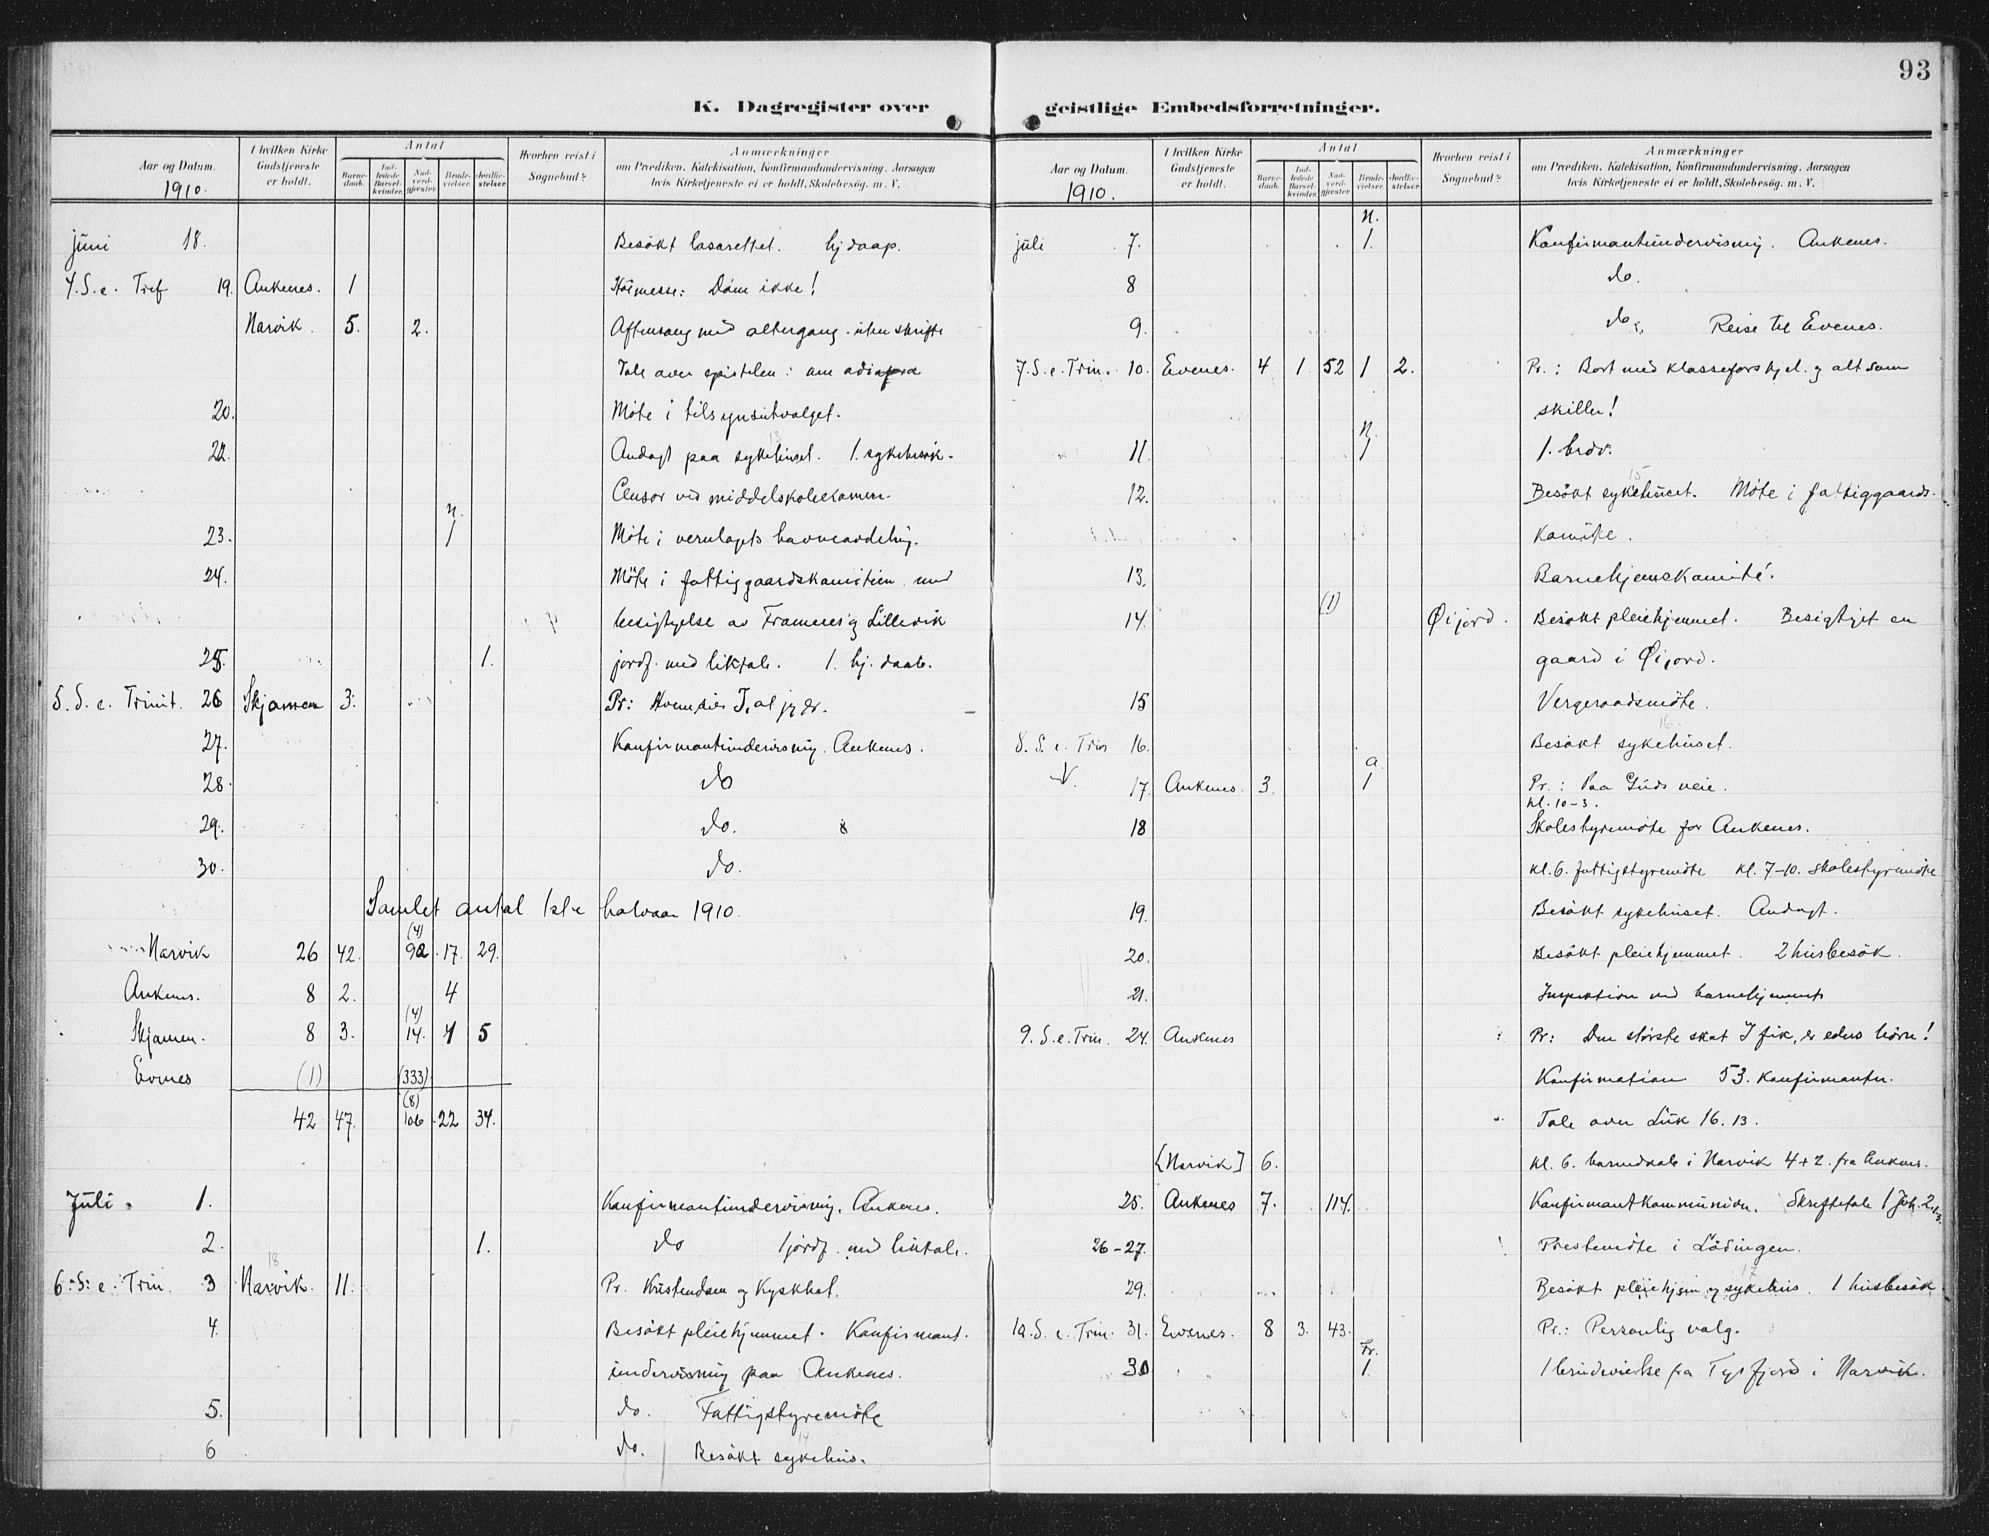 93
K. Dagregister over geistlige Embedsforretninger.
Aar og Datum. 1910.
I hvilken Kirke Gudstjeneste er holdt.
Antal
Barne-daab.
Ind-ledede Barsel-kvinder.
Nad-verd-gjester.
Brude-vielser.
Jordfæ-stelser.
Hvorhen reist i Sognebud?
Anmærkninger
om Prædiken, Katekisation, Konfirmandundervisning, Aarsagen
hvis Kirketjeneste ei er holdt, Skolebesøg. m. V.
juni 18. Besökt lasarettet. hj daap.
4. S. e. Tref 19. Ankenes. 1 Höimesse: Döm ikke!
Narvik. 5. 2. Aftensang med altergang. uten skrifte
Tale over epistelen: om adiafora
20. Möte i tilsynsutvalget.
22. Andagt paa sykehuset. 13 1. sykebesök.
Censor ved middelskoleeksamen.
23. n. 1 Möte i vernelagets havneavdeling.
24. Möte i fattiggaardskomitéen med
besigtigelse av Framnes og Lillevik
25. 1. jordf. med liktale. 1. hj. daab.
5. S. e. Trinit. 26 Skjomen 3. Pr: Hvem sier I, at jeg er.
27. Konfirmantundervisning. Ankenes.
28. do
29. do.
30. do.
Samlet antal 1ste halvaar 1910.
Narvik 26 42. (4) 92. 17. 29.
Ankenes. 8 2. 4
Skjomen. 8 3. (4) 14. 1 5
Evenes (1) (333)
42 47. (8) 106 22 34.
Juli. 1. Konfirmantundervisning. Ankenes.
2. 1. do 1 jordf. med liktale.
6. S. e. Trin. 3 Narvik. 18 11. Pr. Kristendom og Kyskhet.
4. Besökt pleiehjemmet. Konfirmant.
undervisning paa Ankenes.
5. do. Fattigstyremöte
6 do. Besökt sykehus. 14
Aar og Datum. 1910.
I hvilken Kirke Gudstjeneste er holdt.
Antal
Barne-daab.
Ind-ledede Barsel-kvinder.
Nad-verd-gjester
Brude-vielser.
Jordfæ-stelser.
Hvorhen reist i Sognebud?
Anmærkninger
om Prædiken, Katekisation, Konfirmandundervisning, Aarsagen
hvis Kirketjeneste ei er holdt, Skolebesøg. m. V.
juli 7. n. 1. Konfirmantundervisning. Ankenes.
8 do.
9. do. Reise til Evenes.
7. S. e. Trin. 10. Evenes. 4 1 52 1 2. Pr.: Bort med klasseforskjel og alt som
skiller!
11. n. 1 1. brdv.
12. Besökt sykehuset. 15 Möte i fattiggaards-
komite.
13. Barnehjemskomité.
14. (1) Öijord. Besökt pleiehjemmet. Besigtiget en
gaard i Öijord.
15 Vergeraadsmöte.
8. S. e. Trin 16. Besökt sykehuset. 16
17. Ankenes. 3. a 1 Pr.: Paa Guds veie.
kl. 10-3.
18 Skolestyremöte for Ankenes.
kl. 6. fattigstyremöte kl. 7-10. skolestyremöte
19. Besökt sykehuset. Andagt.
20. Besökt pleiehjemmet. 2 husbesök.
21. Inspektion ved barnehjemmet
9. S. e. Trin. 24. Ankenes Pr: Den störste skat I fik, er eders börn!
Konfirmation 53. konfirmanter.
Tale over Luk 16. 13.
[Narvik] 6. kl. 6. barnedaab i Narvik 4+2. fra Ankenes.
25. Ankenes 7. 114. Konfirmantkommunion. Skriftetale 1 Joh. 2,
26-27. Prestemöte i Lödingen.
29. Besökt pleiehjem og sykehus. 17 1 husbesök
10. S. e. Trin. 31. Evenes. 8 3. 43. Pr.: Personlig valg.
30 Fr. 1. 1 brudevielse fra Tysfjord i Narvik.